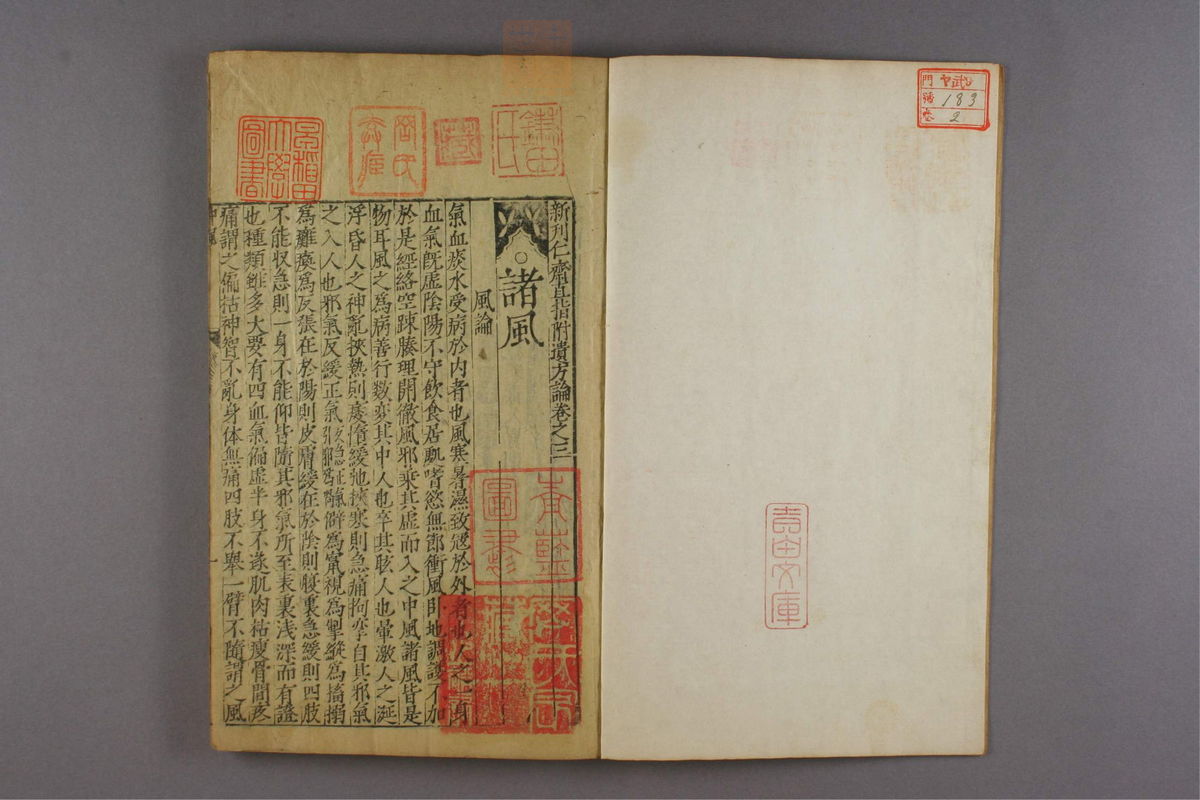 門 ヤ武
號 183
卷 2
吉田文庫
新刋仁齋直指附遺方論卷之三
諸風
風論
氣血痰水受病於内者也風寒暑濕致寇於外者也人之一身
血氣旣虛陰陽不守飲食居處嗜慾無節衝風卧地調護不加
於是經絡空踈腠理開徹風邪乘其虛而入之中風諸風皆是
物耳風之爲病善行数變其中人也卒其眩人也暈激人之涎
浮昏人之神亂挾熱則痿惰緩弛挾寒則急痛拘攣自其邪氣
之入人也邪氣反緩正氣
僻爲竄視爲掣縱爲搐搦
爲癱瘓爲反張在於陽則皮膚緩在於陰則腹裏急緩則四肢
不能収急則一身不能仰皆隨其邪氣所至表裏浅深而有證
也種類雖多大要有四血氣偏虛半身不遂肌肉枯瘦骨間疼
痛謂之偏枯神智不亂身体無痛四肢不舉一臂不隨謂之風
早稻田大學圖書
藏
圖書